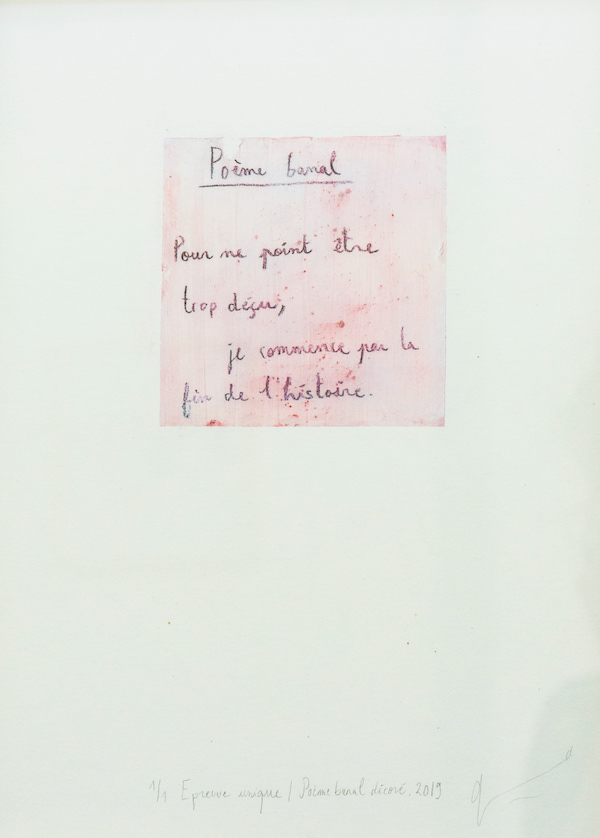 Poème banal
Pour ne point être
trop déçu,
je commence par la
fin de l'histoire.
1/1 Epreuve unique / Poème banal décoré. 2019